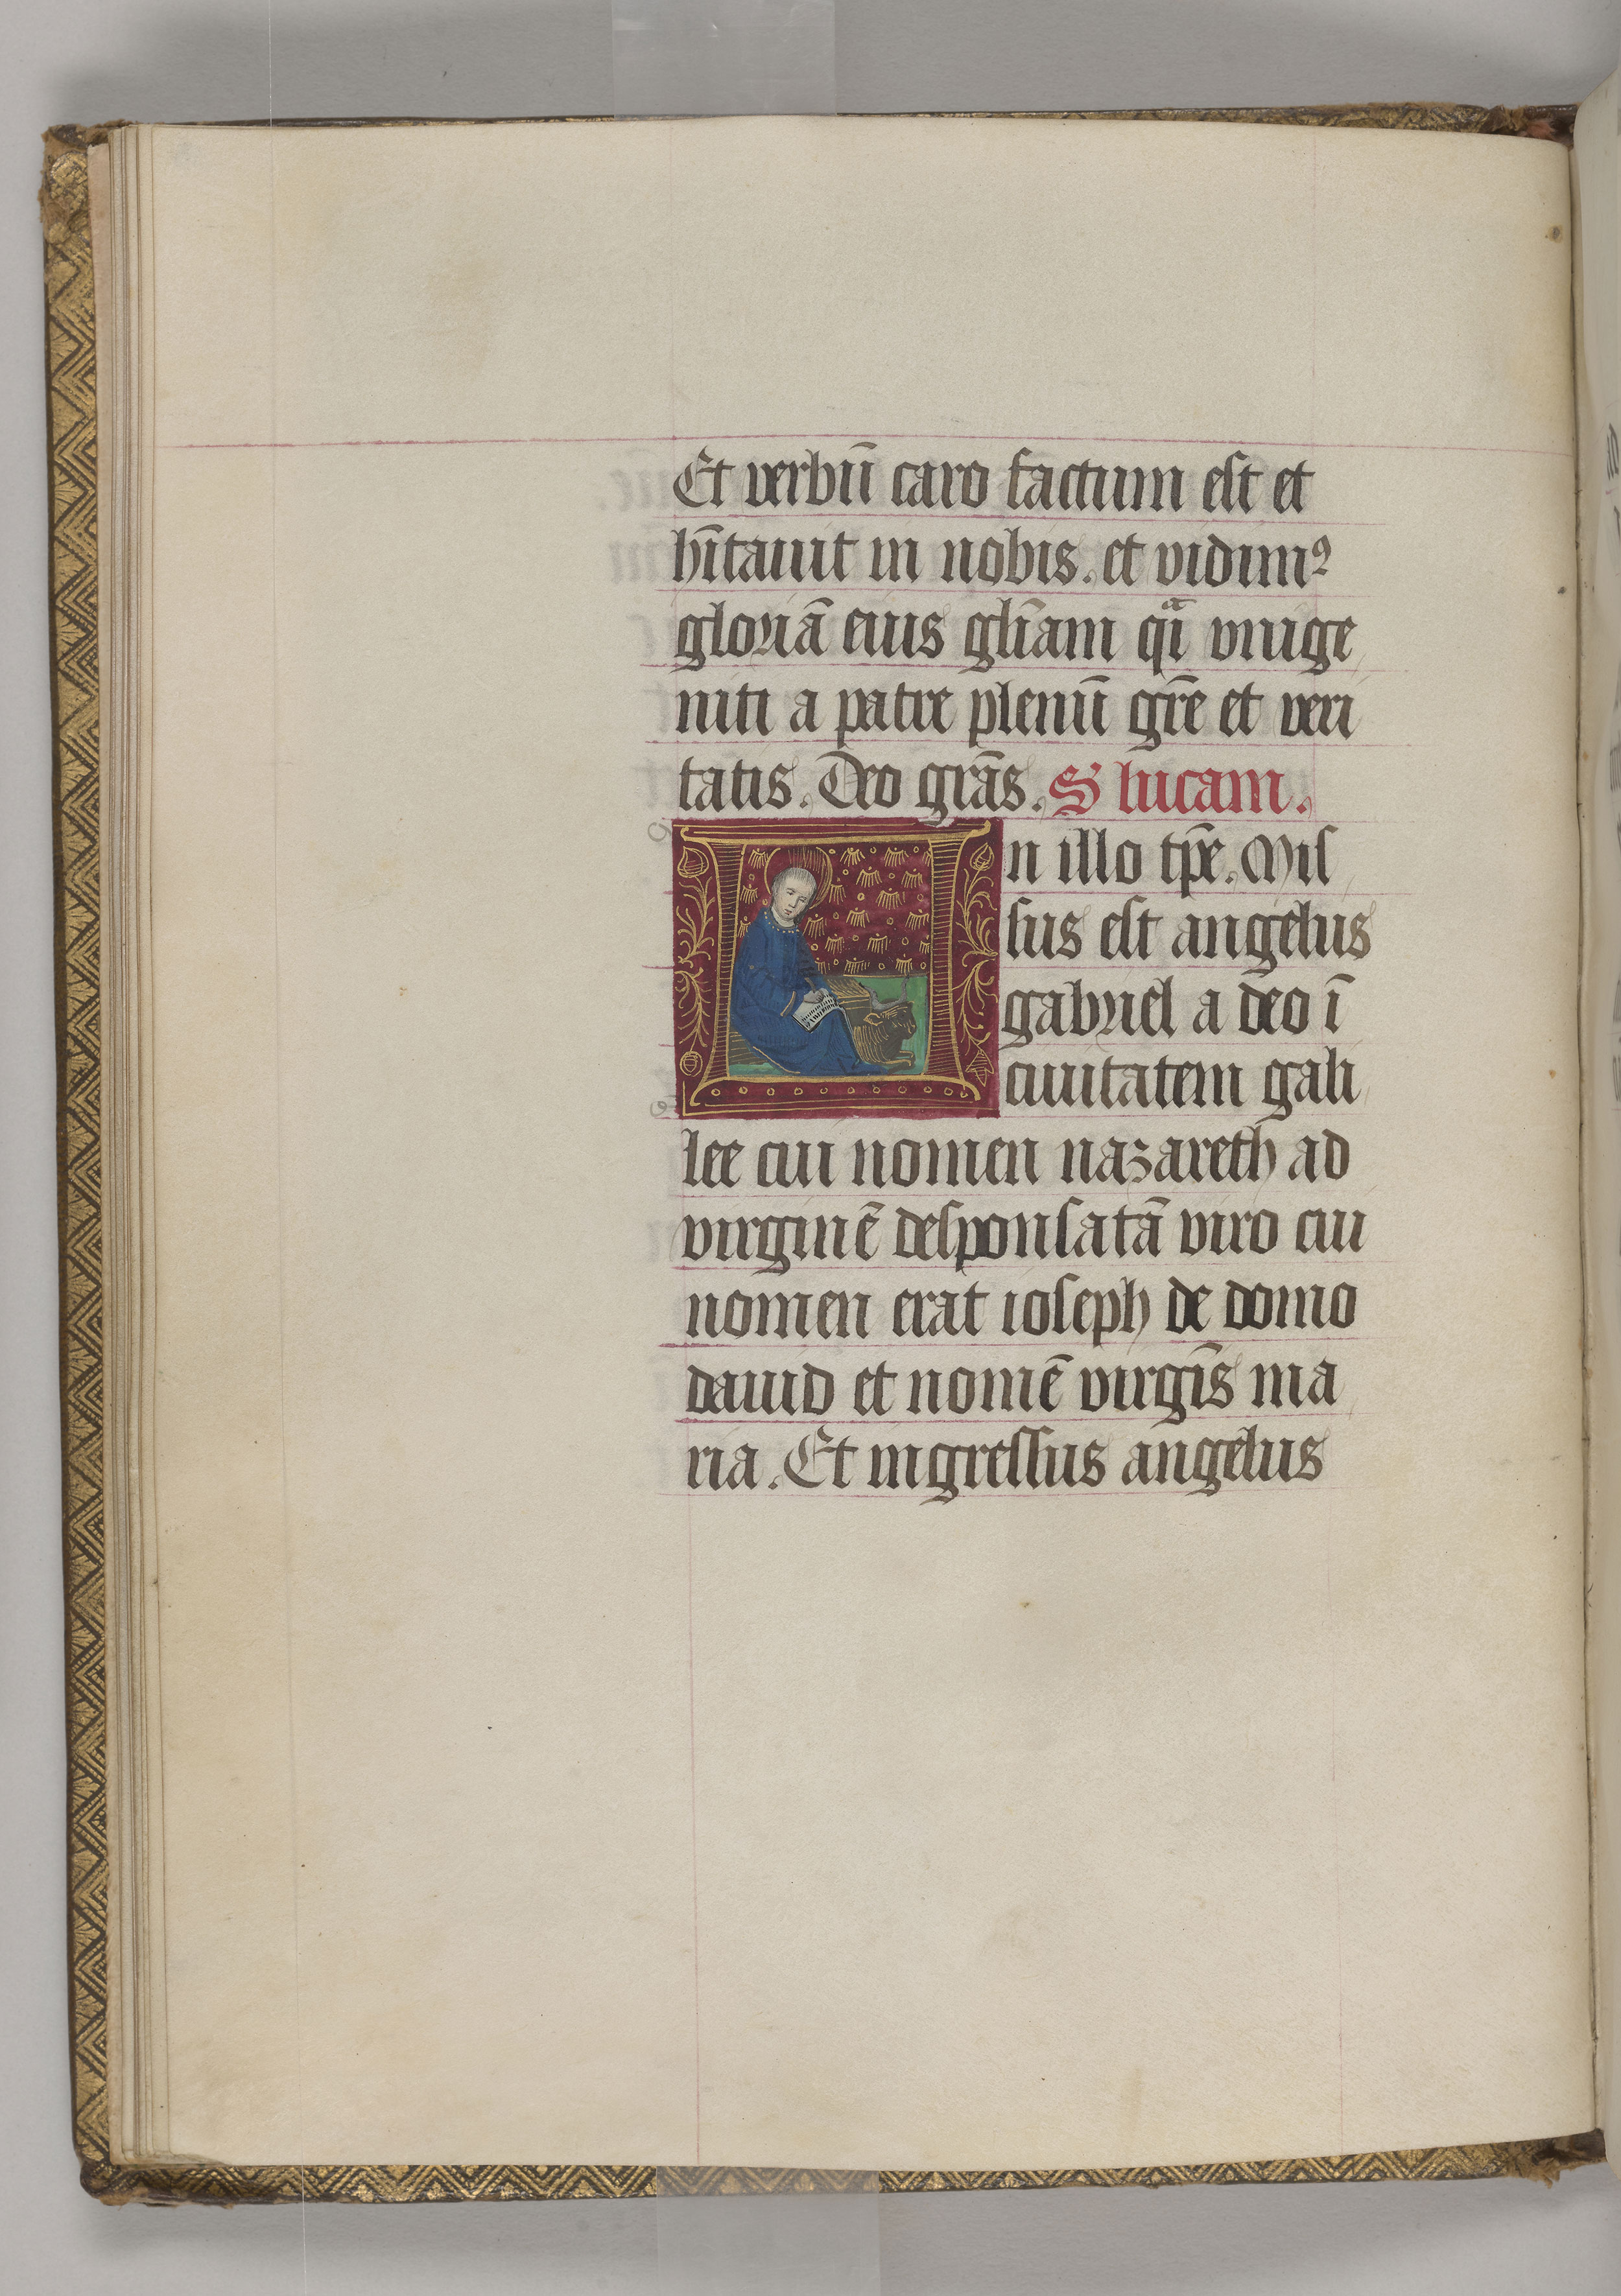 Et verbū caro factum est et
hītauit in nobis. et vidimꝰ
gloriā eius glīam qͣi vnige
niti a patre plenū gr̄e et veri
tatis. Deo grās. S lucam.
n illo tp̄e. Mis
sus est angelus
gabriel a deo ī
ciuitatem gali
lee cui nomen nazareth ad
virginē desponsatā viro cui
nomen erat ioseph de domo
dauid et nomē virgīs ma
ria. Et ingressus angelus